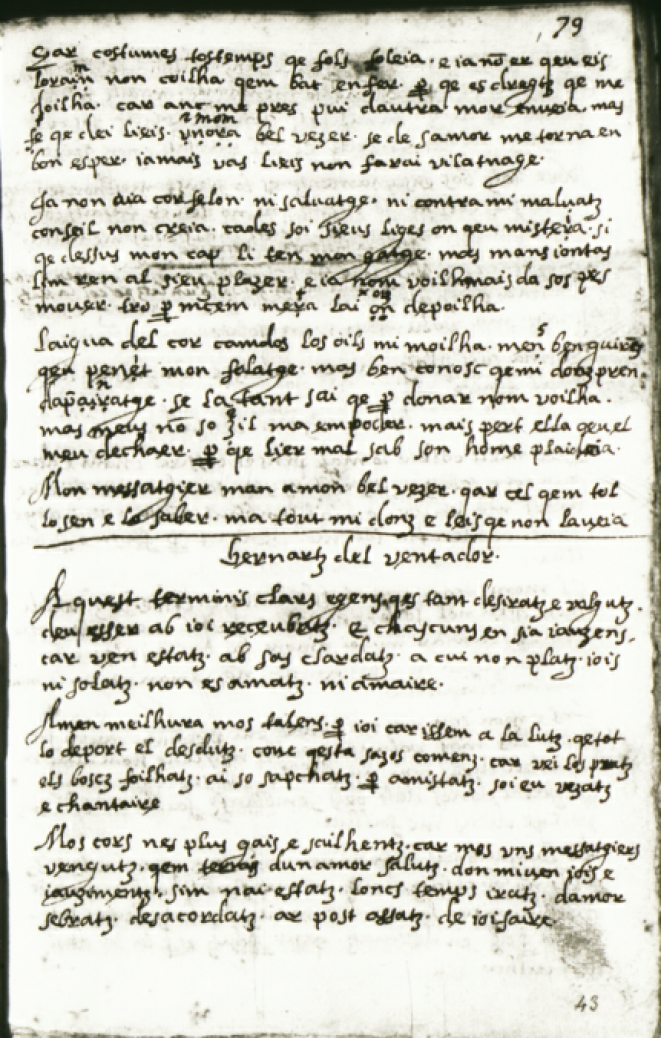 79
Qar costumes tostemps qe fols foleia. e ia nō er qeu eis
lo ram non coilha qem bat en fer. p̱ qe es dregtz qe me
doilha. car anc me pres pui dautra mor enveia. mas
fe qe dei lieis. vnora bel vezer. se de samor me torna en
bon esper. iamais vas lieis non farai vilatnage.
Ja non aia cor felon. ni saluatge. ni contra mi maluatz
conseil non creia. caoles soi sieus liges on qeu mistera. si
qe dessus mon cap li ten mon gatge. mas mans iontas
lim ren al sieu plazer. e ia nom voilh mais da sos pes
mouer. tro p̱ mcem mera lai on depoilha.
Laigua del cor camdos los oils mi moilha. men ben guirez
qeu penet mon folatge. mas ben conosc qe mi dons pren
dapanratge. se la tant sai qe p̱ donar nom voilha.
mas meus nō so ξil ma em poder. mais pert ella qeu el
meu dechaer. p̱ qe lier mal sab son home plaideia.
Mon messatgier man a mon bel vezer. qar cel qem tol
lo sen e lo saber. ma tout mi donz e leis qe non la veia
bernartz del ventador.
A quest terminis clars egens. qes tant desiratz e volgutz.
deu esser ab ioi receubutz. E chascuns en sia iauzens.
car ven estatz. ab sos clardatz. a cui non platz. iois
ni solatz. non es amatz. ni amaire.
A men meilhura mos talens. p̱ ioi car issem a la lutz. qe tot
lo deport el desdutz. conc qesta sazos comenz. car vei los pratz
els boscz foilhatz. ai so sapchatz. p̱ amistatz. soi eu vezatz
e chantaire
Mos cors nes plus gais e scilhentz. car mos vns messatgiers
vengutz. qem dun amor salutz. don miven iois e
iauzimentz. sim nai estatz. loncs temps iratz. damor
sebratz. desacordatz. ar post assatz. de ioi faire.
43